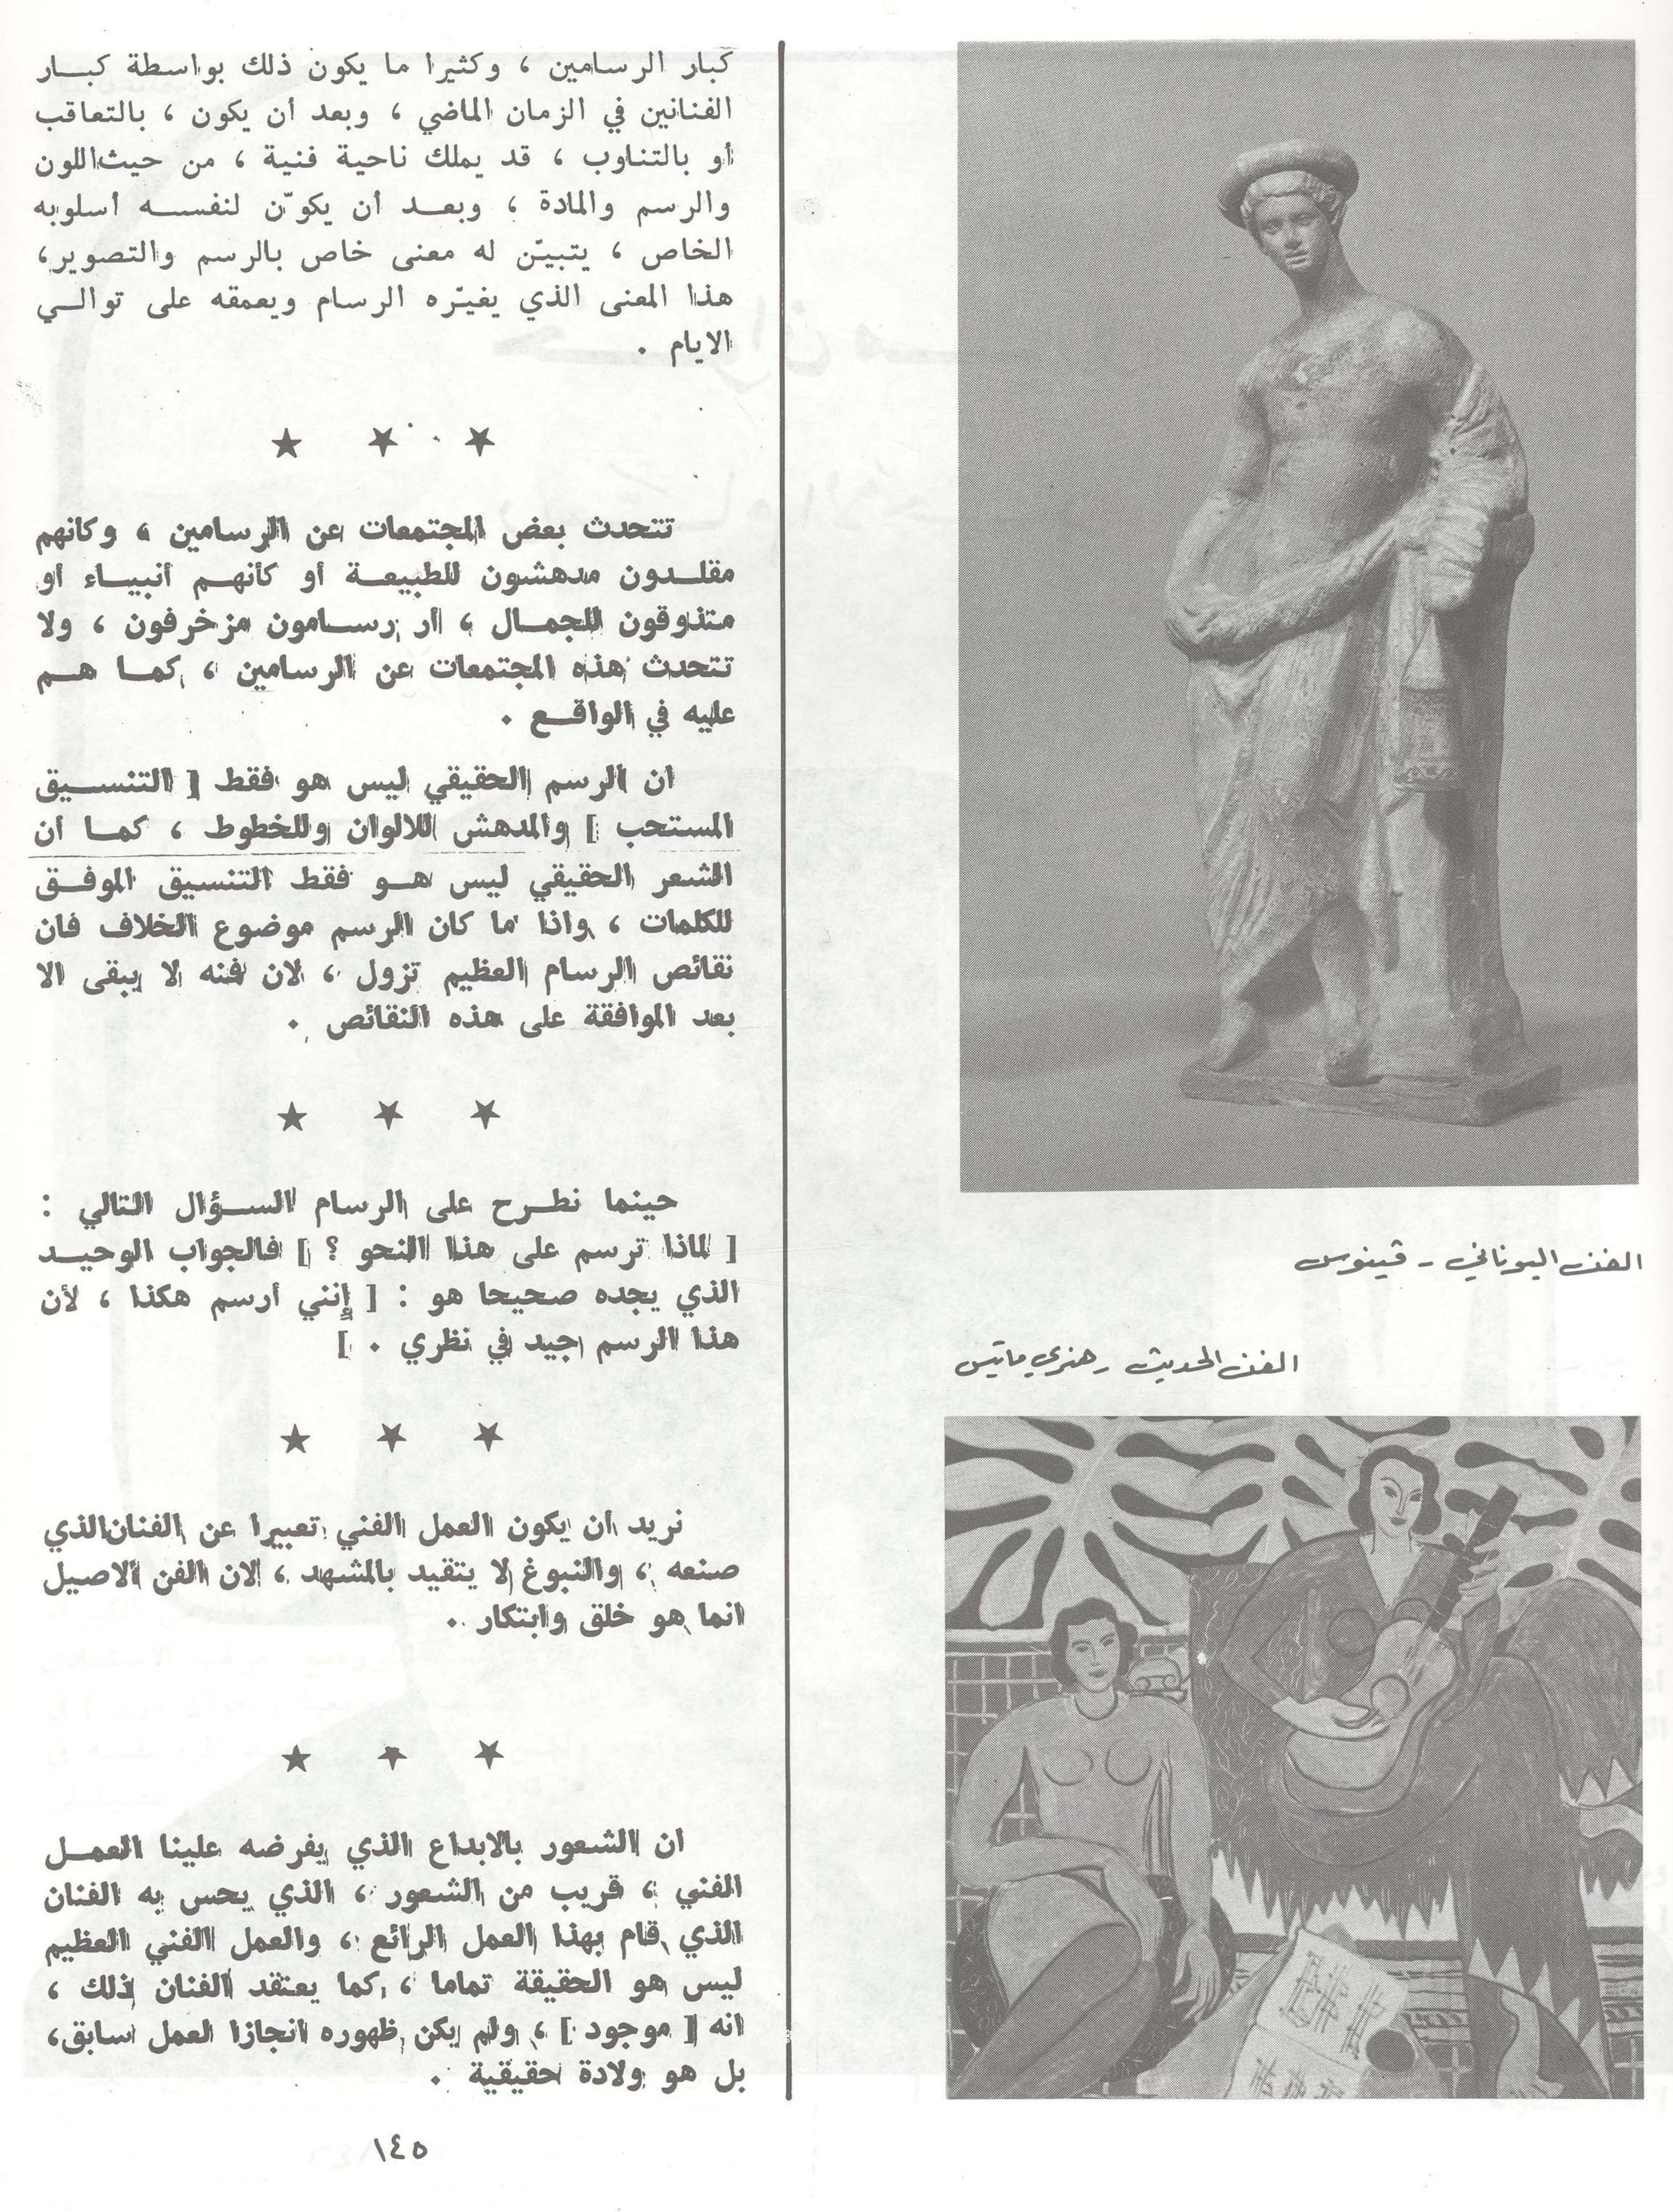 كبار الرسامين ، وكثيرا ما يكون ذلك بواسطة كبـــار
الفنانين في الزمان الماضي ، وبعد أن يكون ، بالتعاقب
أو بالتناوب ، قد يملك ناحية فنية ، من حيث اللون
والرسم والمادة ، وبعـــد أن يكوّن لنفســـه أسلوبه
الخاص ، يتبيّن له معنى خاص بالرسم والتصوير،
هذا المعنى الذي يغيّره الرسام ويعمقه على توالـــي
الايام .
★ ★ ★
تتحدث بعض المجتمعات عن الرسامين ، وكانهم
مقلـــدون مدهشون للطبيعـــة أو كأنهـــم أنبيـــاء أو
متذوقون للجمـــال ، أر رســـامون مزخرفون ، ولا
تتحدث هذه المجتمعات عن الرسامين ، كمـــا هـــم
عليه في الواقـــع .
ان الرسم الحقيقي ليس هو فقط [ التنســـيق
المستحب ] والمدهش للالوان وللخطوط ، كمـــا أن
الشعر الحقيقي ليس هـــو فقط التنسيق الموفـــق
للكلمات ، واذا ما كان الرسم موضوع الخلاف فان
نقائص الرسام العظيم تزول ، لان فنه لا يبقى الا
بعد الموافقة على هذه النقائص .
★ ★ ★
حينما نطـــرح على الرسام الســـؤال التالي :
[ لماذا ترسم على هذا النحو ؟ ] فالجواب الوحيـــد
الذي يجده صحيحا هو : [ إنني أرسم هكذا ، لأن
هذا الرسم جيد في نظري . ]
★ ★ ★
نريد ان يكون العمل الفني تعبيرا عن الفنان الذي
صنعه ، والنبوغ لا يتقيد بالمشهد ، لان الفن الاصيل
انما هو خلق وابتكار .
★ ★ ★
ان الشعور بالابداع الذي يفرضه علينا العمـــل
الفني ، قريب من الشعور ، الذي يحس به الفنان
الذي قام بهذا العمل الرائع ، والعمل الفني العظيم
ليس هو الحقيقة تماما ، كما يعتقد الفنان ذلك ،
انه [ موجود ] ، ولم يكن ظهوره انجازا لعمل سابق،
بل هو ولادة حقيقية .
الفن اليوناني - ڤينوس
الفن الحديث - هنري ماتيس
١٤٥